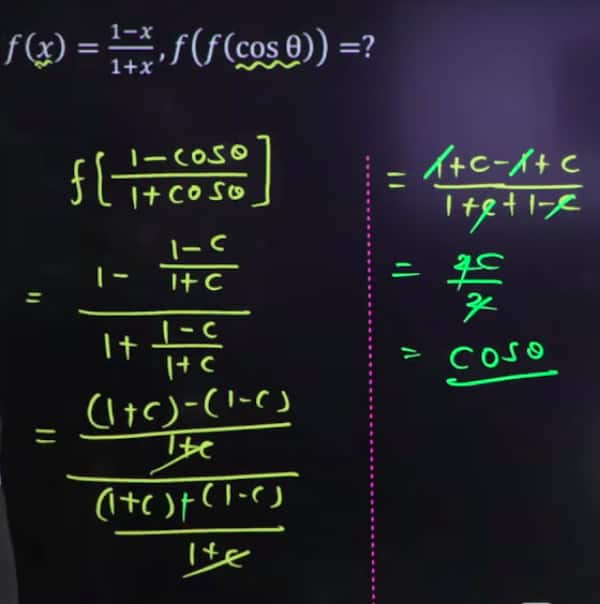 f(x) = (1-x)/(1+x), f(f(cos θ)) =?
f[(1-cosθ)/(1+cosθ)]
= (1 - (1-c)/(1+c)) / (1 + (1-c)/(1+c))
= (((1+c)-(1-c))/(1+c)) / (((1+c)+(1-c))/(1+c))
= (1+c-1+c)/(1+c+1-c)
= 2c/2
= cosθ